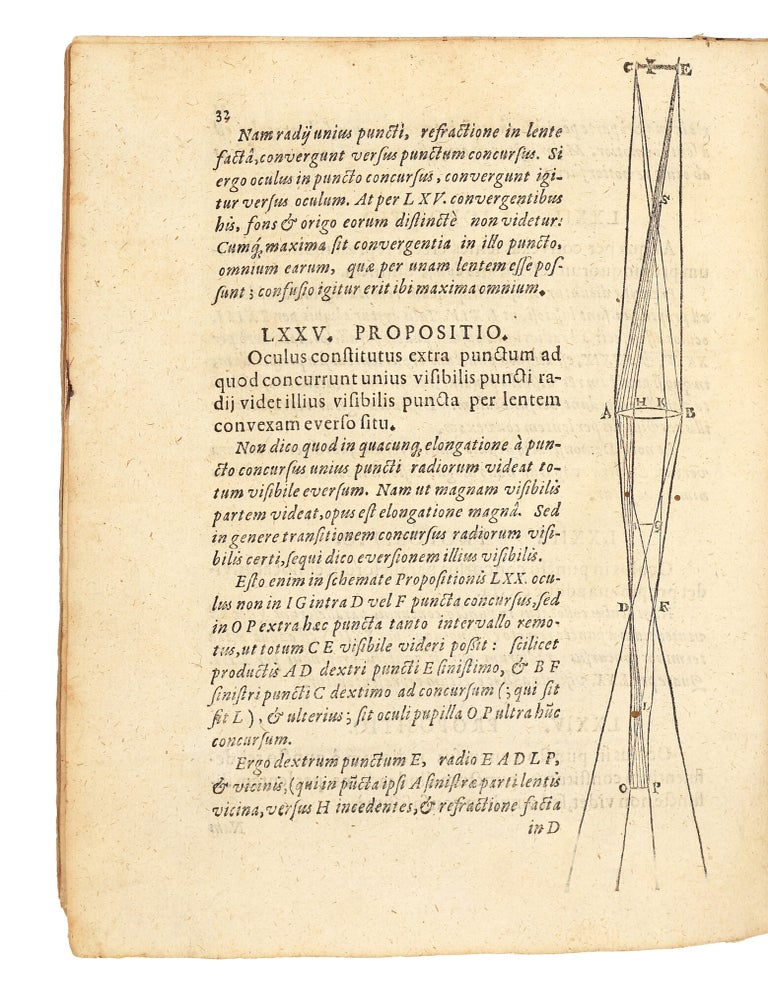 32
Nam radij unius puncti, refractione in lente
factâ, convergunt versus punctum concursus. Si
ergo oculus in puncto concursus, convergunt igi-
tur versus oculum. At per LXV. convergentibus
his, fons & origo eorum distinctè non videtur:
Cumq́; maxima sit convergentia in illo puncto,
omnium earum, quæ per unam lentem esse pos-
sunt; confusio igitur erit ibi maxima omnium.
LXXV. PROPOSITIO.
Oculus constitutus extra punctum ad
quod concurrunt unius visibilis puncti ra-
dij videt illius visibilis puncta per lentem
convexam everso situ.
Non dico quod in quacunq; elongatione à pun-
cto concursus unius puncti radiorum videat to-
tum visibile eversum. Nam ut magnam visibilis
partem videat, opus est elongatione magnâ. Sed
in genere transitionem concursus radiorum visi-
bilis certi, sequi dico eversionem illius visibilis.
Esto enim in schemate Propositionis LXX. ocu-
lus non in IG intra D vel F puncta concursus, sed
in OP extra hæc puncta tanto intervallo remo-
tus, ut totum CE visibile videri possit: scilicet
productis AD dextri puncti E sinistimo, & BF
sinistri puncti C dextimo ad concursum (; qui sit
sit L), & ulterius; sit oculi pupilla OP ultra hũc
concursum.
Ergo dextrum punctum E, radio EADLP,
& vicinis, (qui in pũcta ipsi A sinistræ parti lentis
vicina, versus H incedentes, & refractione facta
in D
C I E
S
A H K B
G
D F
L
O P